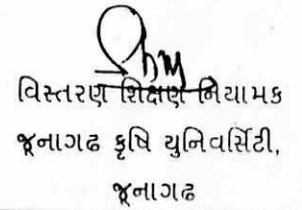 વિસ્તરણ શિક્ષણ નિયામક
જૂનાગઢ કૃષિ યુનિવર્સિટી,
જૂનાગઢ